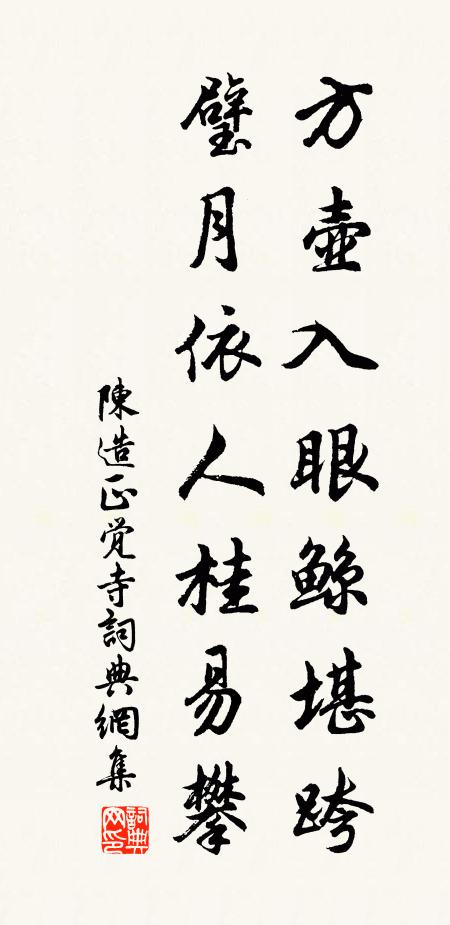 方壺入眼鲸堪跨
璧月依人桂易攀
陳造正覚寺詞典網集
詞典網印